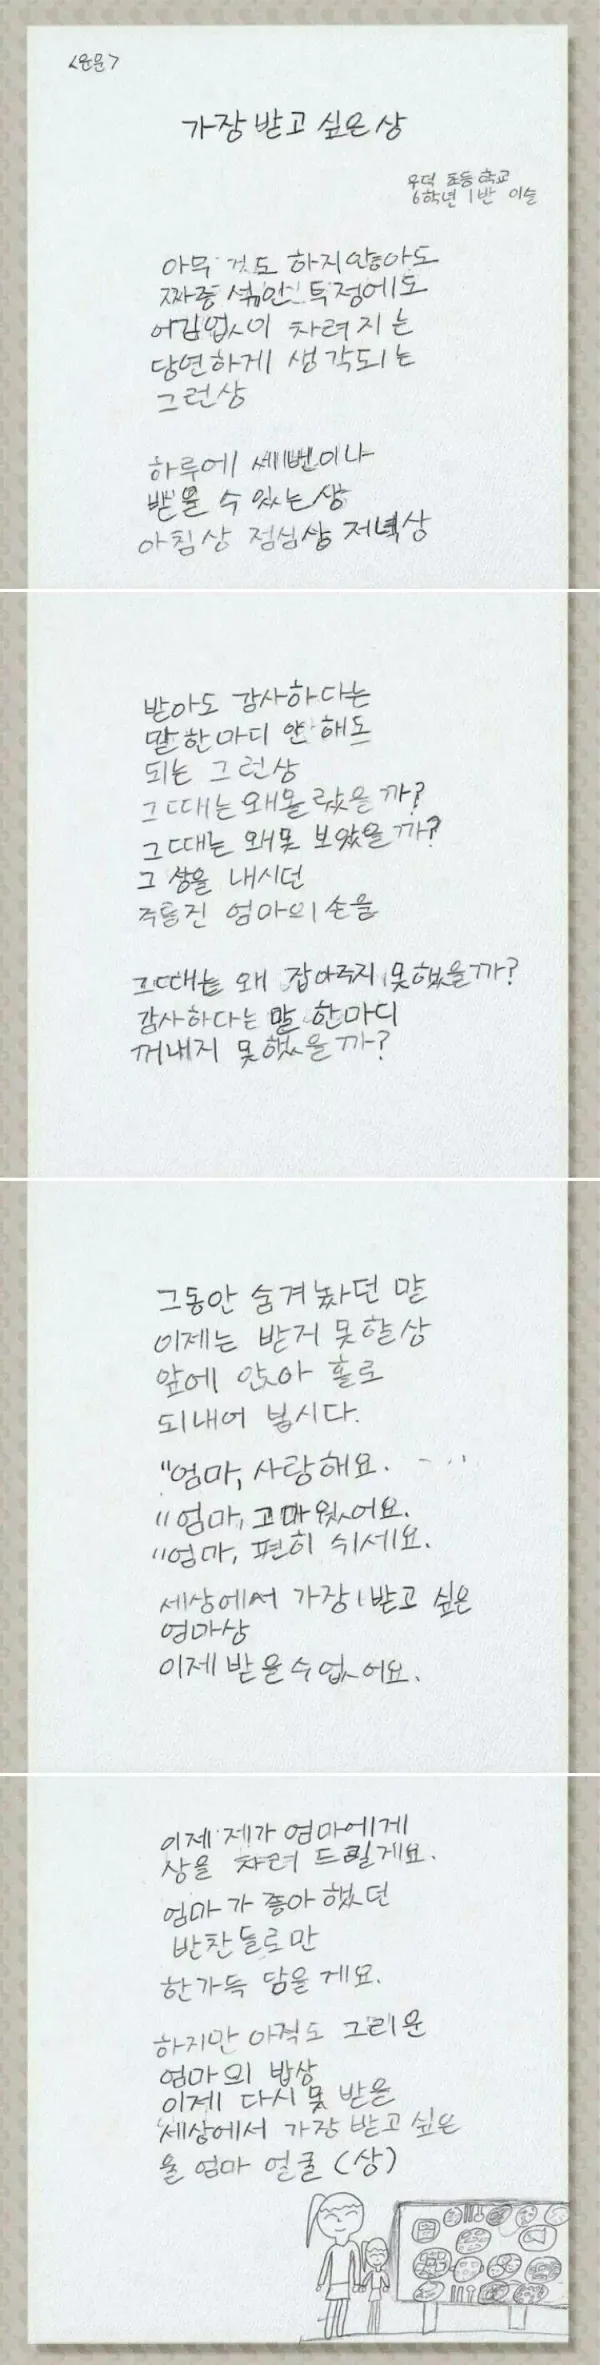 <운문>
가장 받고 싶은 상
우덕 초등학교
6학년 1반 이슬
아무 것도 하지않아도
짜증 섞인 투정에도
어김없이 차려지는
당연하게 생각되는
그런상
하루에 세번이나
받을 수 있는상
아침상 점심상 저녁상
받아도 감사하다는
말한마디 안해도
되는 그런상
그때는 왜몰랐을까?
그때는 왜못 보았을까?
그 상을 내시던
주름진 엄마의 손을
그때는 왜 잡아주지 못했을까?
감사하다는 말 한마디
꺼내지 못했을까?
그동안 숨겨놨던 말
이제는 받지 못할상
앞에 앉아 홀로
되내어 봅시다.
"엄마, 사랑해요. - ..
"엄마, 고마웠어요.
"엄마, 편히 쉬세요.
세상에서 가장 받고 싶은
엄마상
이제받을수없어요.
이제 제가 엄마에게
상을 차려 드릴게요.
엄마가 좋아했던
반찬들로만
한가득 담을게요.
하지만 아직도 그리운
엄마의 밥상
이제 다시 못 받을
세상에서 가장 받고 싶은
울 엄마 얼굴 (상)